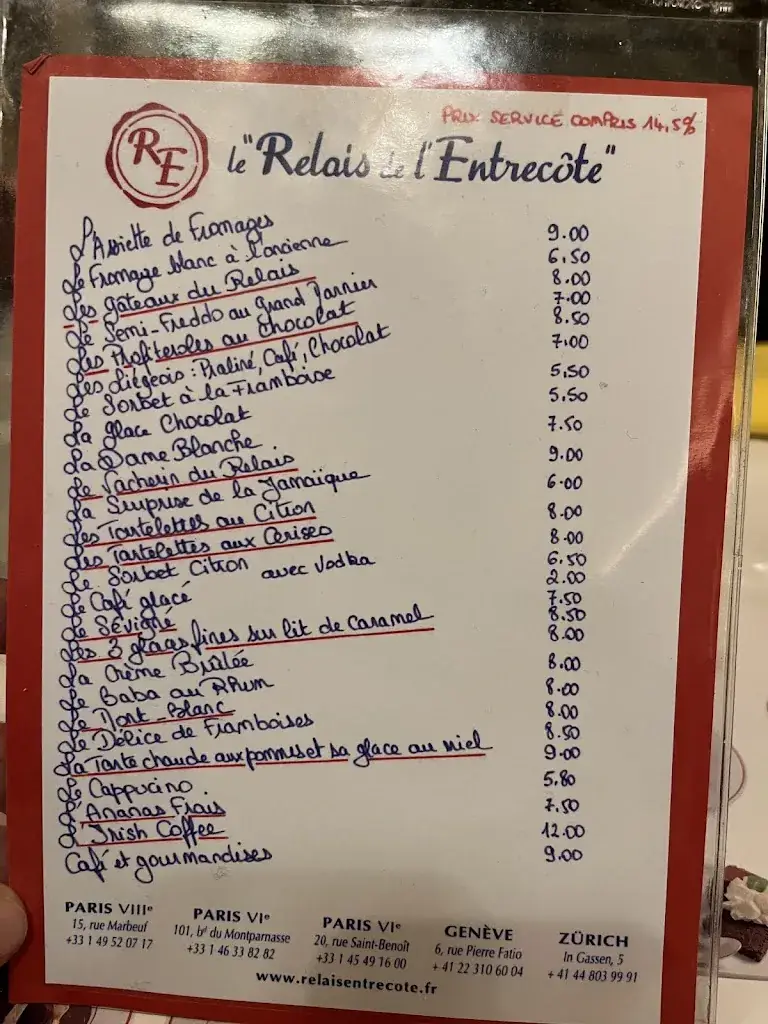 PRIX SERVICE COMPRIS 14,5%
RE
le "Relais de l'Entrecôte"
L'Assiette de Fromages 9.00
Le Fromage blanc à l'ancienne 6.50
Les gâteaux du Relais 8.00
Le Semi-Freddo au Grand Marnier 7.00
Les Profiteroles au chocolat 8.50
Les Liégeois : Praliné, Café, Chocolat 7.00
Le Sorbet à la Framboise 5.50
La glace Chocolat 5.50
La Dame Blanche 7.50
Le Vacherin du Relais 9.00
La Surprise de la Jamaïque 6.00
Les Tartelettes au Citron 8.00
Les Tartelettes aux Cerises 8.00
Le Sorbet Citron 6.50
avec Vodka 2.00
Le Café glacé 7.50
Le Sévigné 8.50
Les 3 glaces fines sur lit de caramel 8.00
La Crème Brûlée 8.00
Le Baba au Rhum 8.00
Le Mont-Blanc 8.00
Le Délice de Framboises 8.50
La Tarte chaude aux pommes et sa glace au miel 9.00
Le Cappucino. 5.80
L'Ananas Frais 7.50
L'Irish Coffee 12.00
Café et gourmandises 9.00
PARIS VIIIe
15, rue Marbeuf
+33 1 49 52 07 17
PARIS VIe
101, bd du Montparnasse
+33 1 46 33 82 82
PARIS VIe
20, rue Saint-Benoît
+33 1 45 49 16 00
GENÈVE
6, rue Pierre Fatio
+ 41 22 310 60 04
ZÜRICH
In Gassen, 5
+ 41 44 803 99 91
www.relaisentrecote.fr